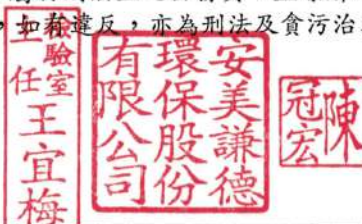 ，如有違反，亦為刑法及貪污治
檢驗室
主任
王宜梅
安美謙德
環保股份
有限公司
陳冠宏